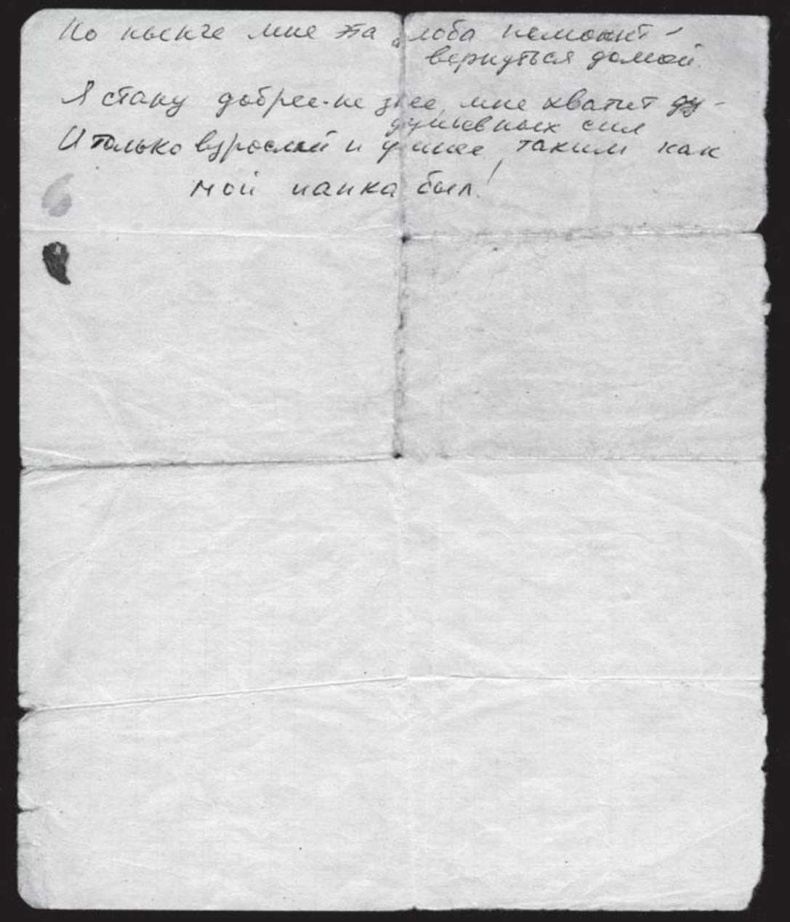 Но нынче мне эта злоба поможет
вернуться домой.
Я стану добрее-не злее, мне хватит ду-
душевных сил
И только взрослей и умнее, таким как
мой папка был!